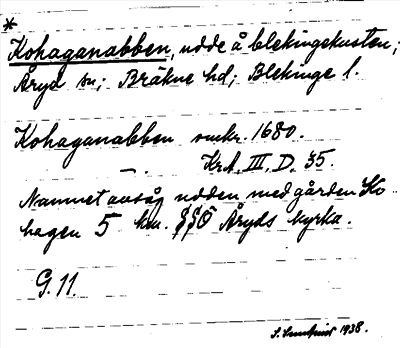 *
Kohaganabben, udde å blekingekusten;
Åryd sn; Bräkne hd; Blekinge l.
Kohaganabben omkr. 1680.
KrA, III, D, 35.
Namnet avsåg udden med gården Ko-
hagen 5 km. SSÖ Åryds kyrka.
G. 11.
1938.